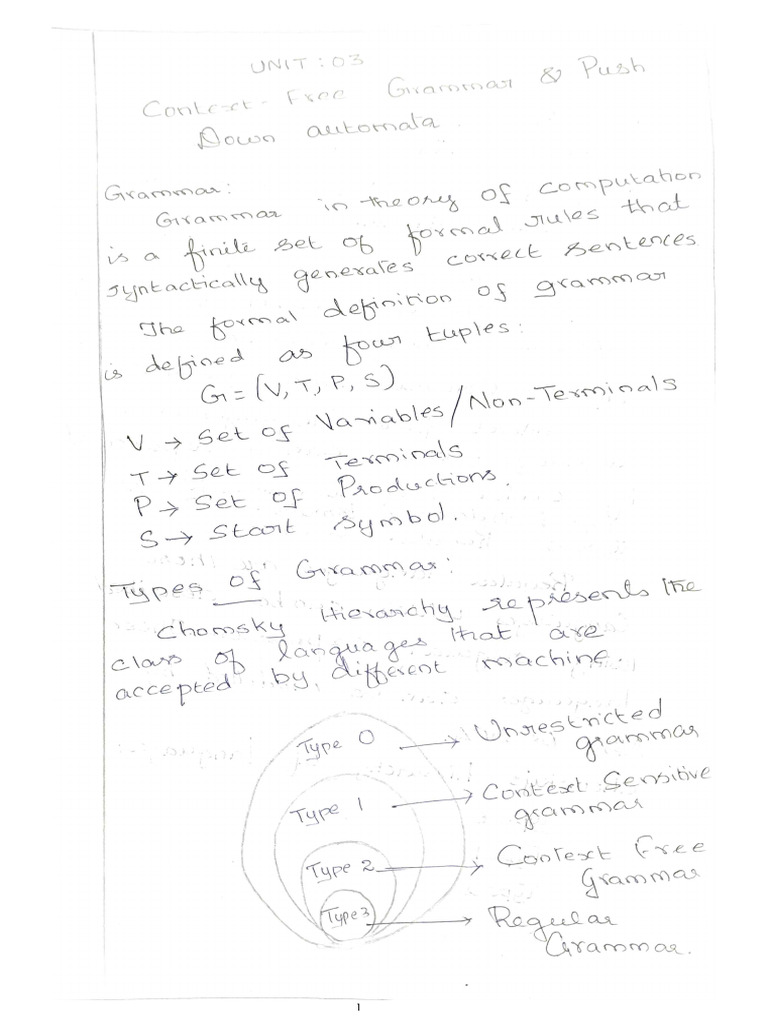 UNIT : 03
Context-Free Grammar & Push
Down automata
Grammar:
Grammar in theory of computation
is a finite set of formal rules that
syntactically generates correct sentences
The formal definition of grammar
is defined as four tuples:
G = (V, T, P, S)
V → Set of Variables/Non-Terminals
T → Set of Terminals
P → Set of Productions.
S → Start Symbol.
Types of Grammar:
Chomsky Hierarchy represents the
class of languages that are
accepted by different machine.
Type 0 → Unrestricted
grammar
Type 1 → Context Sensitive
grammar
Type 2 → Context Free
Grammar
Type 3 → Regular
Grammar.
1